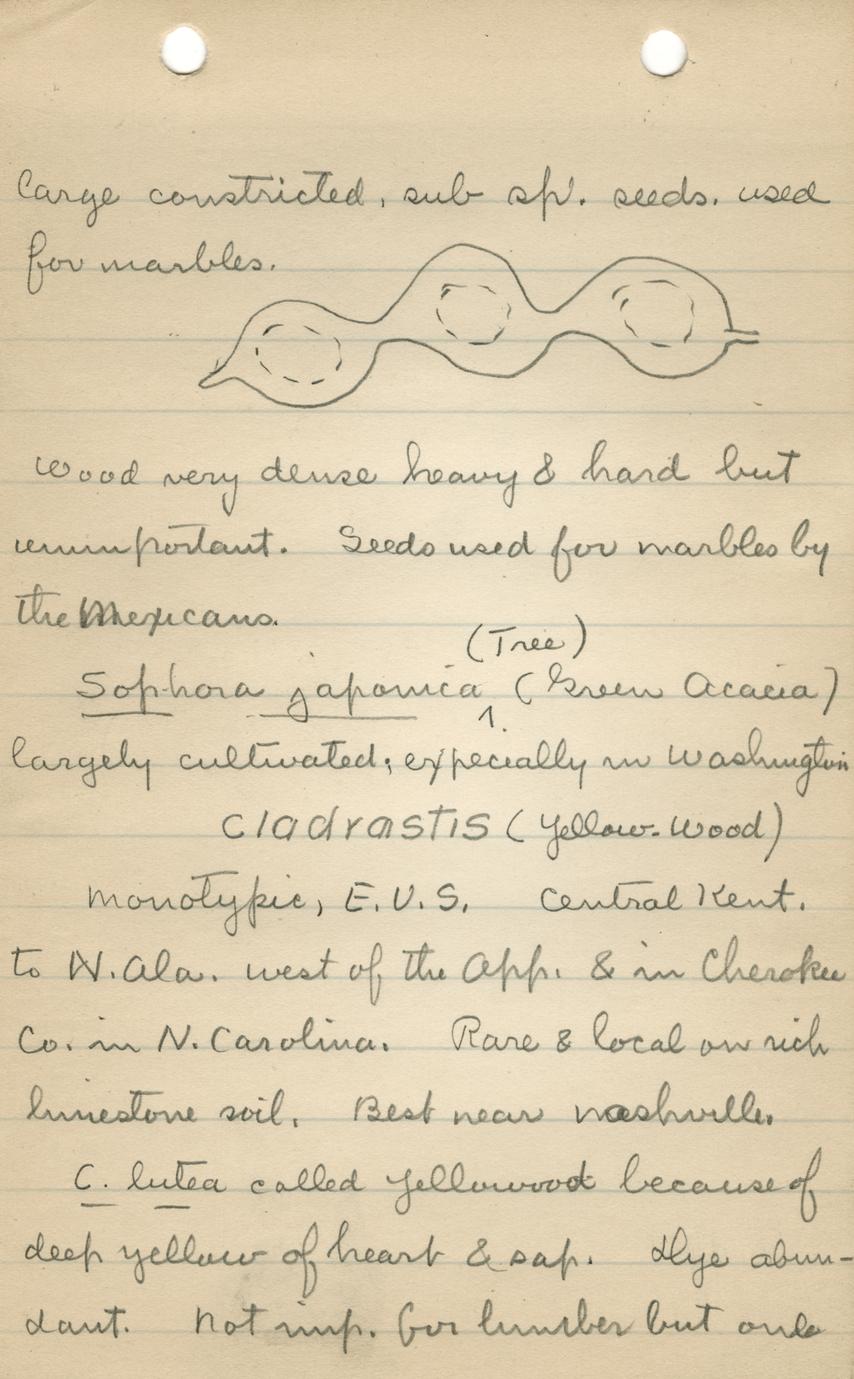 large constricted, sub sp. seeds. used
for marbles.
Wood very dense heavy & hard but
unimportant. Seeds used for marbles by
the Mexicans.
(Tree)
Sophora japonica ^ (Green Acacia)
largely cultivated; expecially in Washington
Cladrastis (Yellow-Wood)
Monotypic, E.U.S. Central Kent.
to N. Ala. west of the App. & in Cherokee
Co. in N. Carolina. Rare & local on rich
limestone soil. Best near Nashville.
C. lutea called Yellowood because of
deep yellow of heart & sap. Dye abun-
dant. Not imp. for lumber but